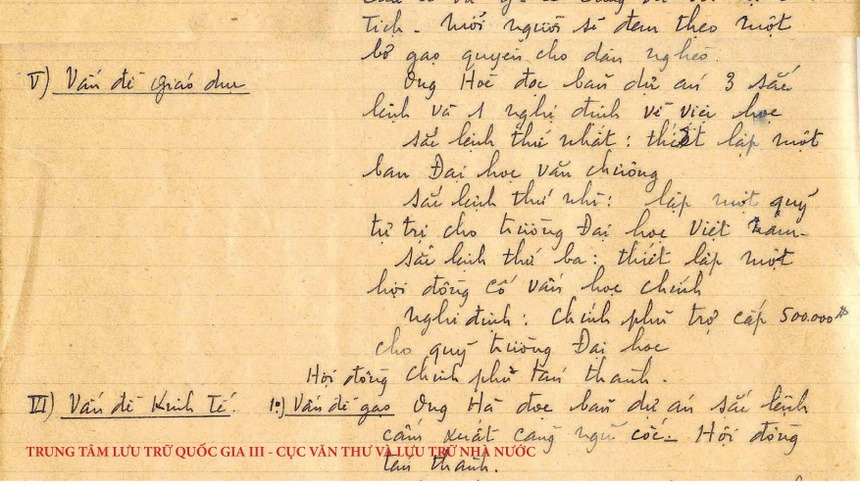 tịch. Mỗi người sẽ đem theo một
bơ gạo quyên cho dân nghèo.
V) Vấn đề giáo dục
Ông Hoè đọc bản dự án 3 sắc
lệnh và 1 nghị định về việc học
sắc lệnh thứ nhất : thiết lập một
ban Đại học văn chương
sắc lệnh thứ nhì : lập một quỹ
tự trị cho trường Đại học Việt Nam.
sắc lệnh thứ ba : thiết lập một
hội đồng cố vấn học chính
nghị định : chính phủ trợ cấp 500.000đ
cho quỹ trường Đại học
Hội đồng chính phủ tán thành.
VI) Vấn đề Kinh tế. 1º) Vấn đề gạo Ông Hà đọc bản dự án sắc lệnh
cấm xuất cảng ngũ cốc – Hội đồng
tán thành.
TRUNG TÂM LƯU TRỮ QUỐC GIA III - CỤC VĂN THƯ VÀ LƯU TRỮ NHÀ NƯỚC